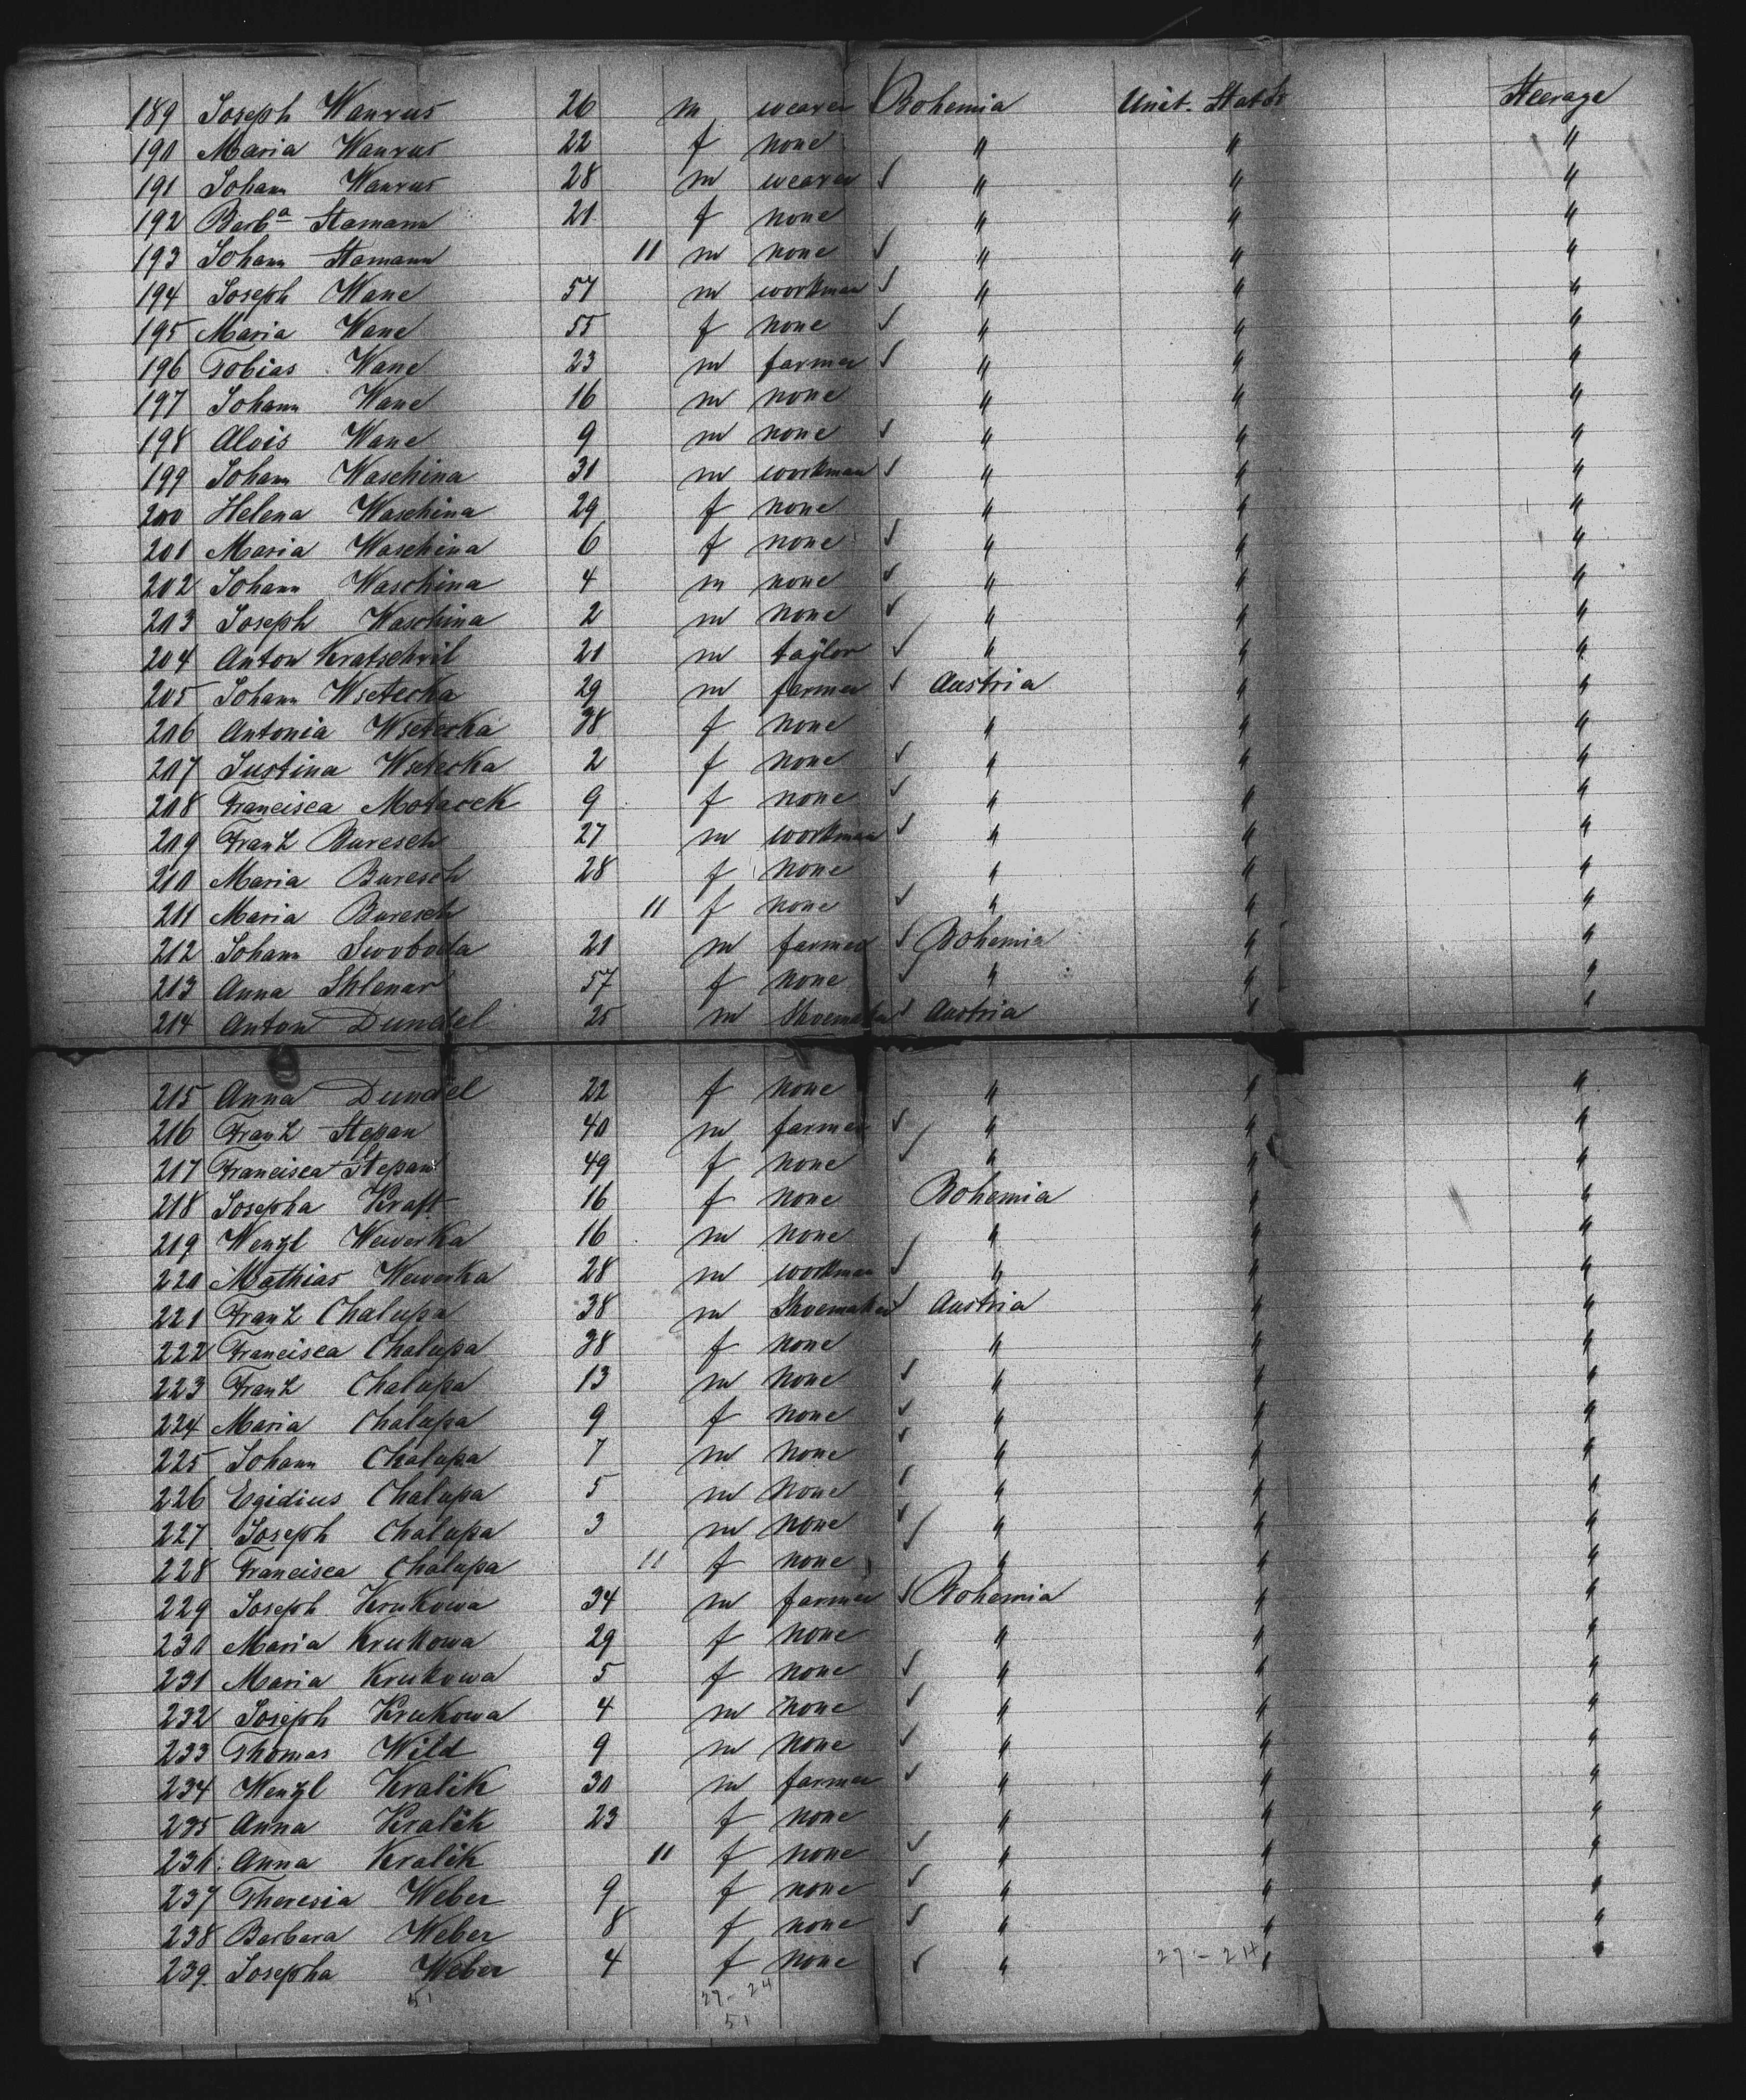 189 Joseph Wanrus 26 m weaver Bohemia Unit. States Steerage
190 Maria Wanrus 22 f none " " "
191 Johann Wanrus 28 m weaver √ " " "
192 Barbª Stamann 21 f none " " "
193 Johann Stamann 11 m none √ " " "
194 Joseph Wane 57 m workman √ " " "
195 Maria Wane 55 f none √ " " "
196 Tobias Wane 23 m farmer √ " " "
197 Johann Wane 16 m none " " "
198 Alois Wane 9 m none √ " " "
199 Johann Waschina 31 m workman √ " " "
200 Helena Waschina 29 f none " " "
201 Maria Waschina 6 f none √ " " "
202 Johann Waschina 4 m none √ " " "
203 Joseph Waschina 2 m none √ " " "
204 Anton Kratschvil 21 m taylor √ " " "
205 Johann Wsetecka 29 m farmer √ Austria " "
206 Antonia Wsetecka 38 f none " " "
207 Justina Wsetecka 2 f none √ " " "
208 Francisca Motacek 9 f none √ " " "
209 Franz Buresch 27 m workman √ " " "
210 Maria Buresch 28 f none " " "
211 Maria Buresch 11 f none √ " " "
212 Johann Swoboda 21 m farmer √ Bohemia " "
213 Anna Shlenar 57 f none √ " " "
214 Anton Dundel 25 m Shoemaker √ Austria " "
215 Anna Dundel 22 f none " " "
216 Franz Stepan 40 m farmer √ " " "
217 Francisca Stepan 49 f none √ " " "
218 Josepha Kraft 16 f none Bohemia " "
219 Wenzl Wewerka 16 m none " " "
220 Mathias Wewerka 28 m workman √ " " "
221 Franz Chalupa 38 m Shoemaker √ Austria " "
222 Francisca Chalupa 38 f none " " "
223 Franz Chalupa 13 m none √ " " "
224 Maria Chalupa 9 f none √ " " "
225 Johann Chalupa 7 m none √ " " "
226 Egidius Chalupa 5 m none √ " " "
227 Joseph Chalupa 3 m none √ " " "
228 Francisca Chalupa 11 f none " " "
229 Joseph Krukowa 34 m farmer √ Bohemia " "
230 Maria Krukowa 29 f none " " "
231 Maria Krukowa 5 f none √ " " "
232 Joseph Krukowa 4 m none √ " " "
233 Thomas Wild 9 m none √ " " "
234 Wenzl Kralik 30 m farmer √ " " "
235 Anna Kralik 23 f none " " "
236 Anna Kralik 11 f none √ " " "
237 Theresia Weber 9 f none √ " " "
238 Barbara Weber 8 f none √ " " "
239 Josepha Weber 4 f none √ " 27-24 " "
51 27-24
51